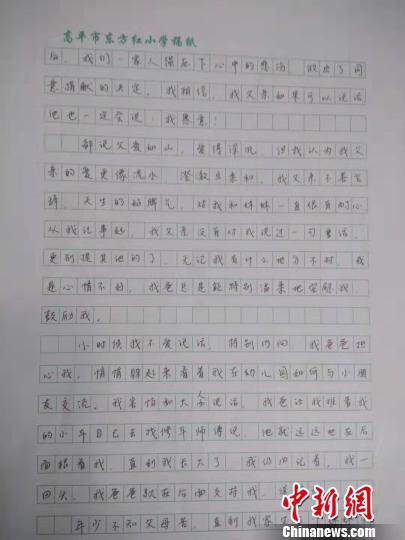 高平市东方红小学稿纸
后，我们一家人强忍下心中的悲伤 做出了同
意捐献的决定，我相信，我父亲如果可以说话
他也一定会说：我愿意！
都说父爱如山，爱得深沉，但我认为我父
亲的爱更像流水，澄澈且柔和，我父亲不善言
辞，天生的好脾气，对我和妹妹一直很有耐心
从我记事起，我父亲没有对我说过一句重话，
更别提其他的了，无论我有什么地方不对，我
是心情不好，我爸总是能特别温柔地安慰我，
鼓励我。
小时候我不爱说话，特别内向，我爸爸担
心我，悄悄躲起来看着我在幼儿园如何与小朋
友交流。我害怕和大人说话，我爸让我推着我
的小车自己去找修车师傅说，他就远远地在后
面跟着我，直到我长大了，我仍旧记着，我一
回头，我爸爸就在后面支持我，
年少不知父母苦，直到我
中新网